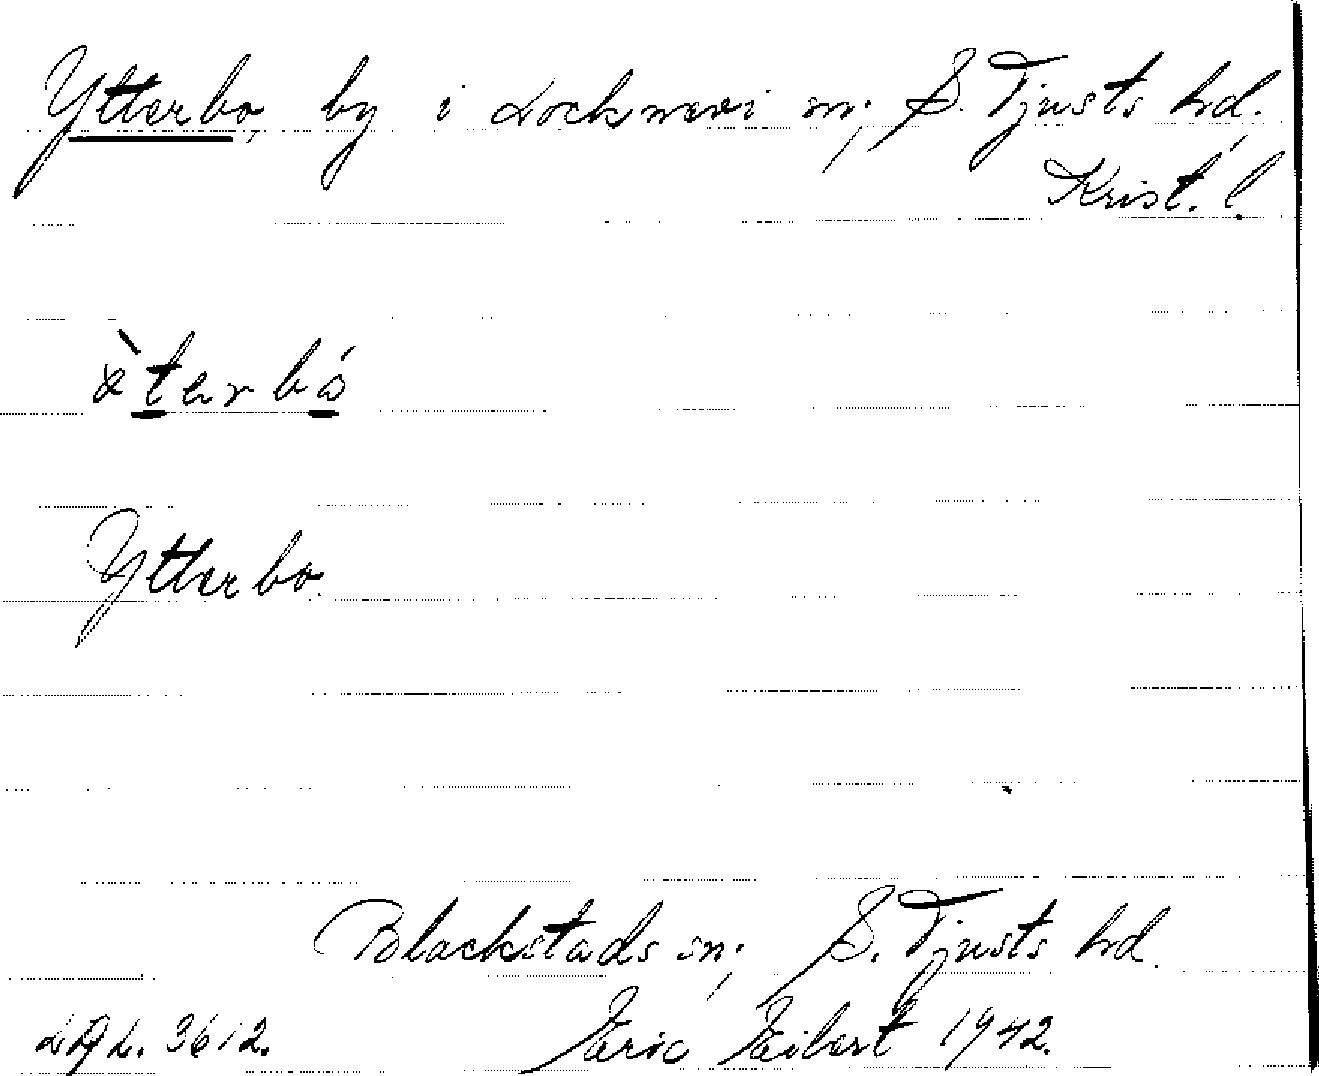 Ytterbo, by i Locknevi sn; S. Tjusts hd.
Krist. l.
Ytterbo.
Blackstads sn; S. Tjusts hd.
3612. Eric Eibert 1942.